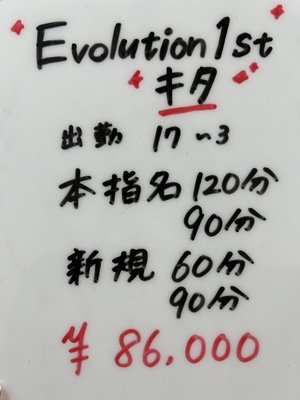 Evolution1st
キタ
出勤 17~3
本指名 120分
90分
新規 60分
90分
¥ 86,000